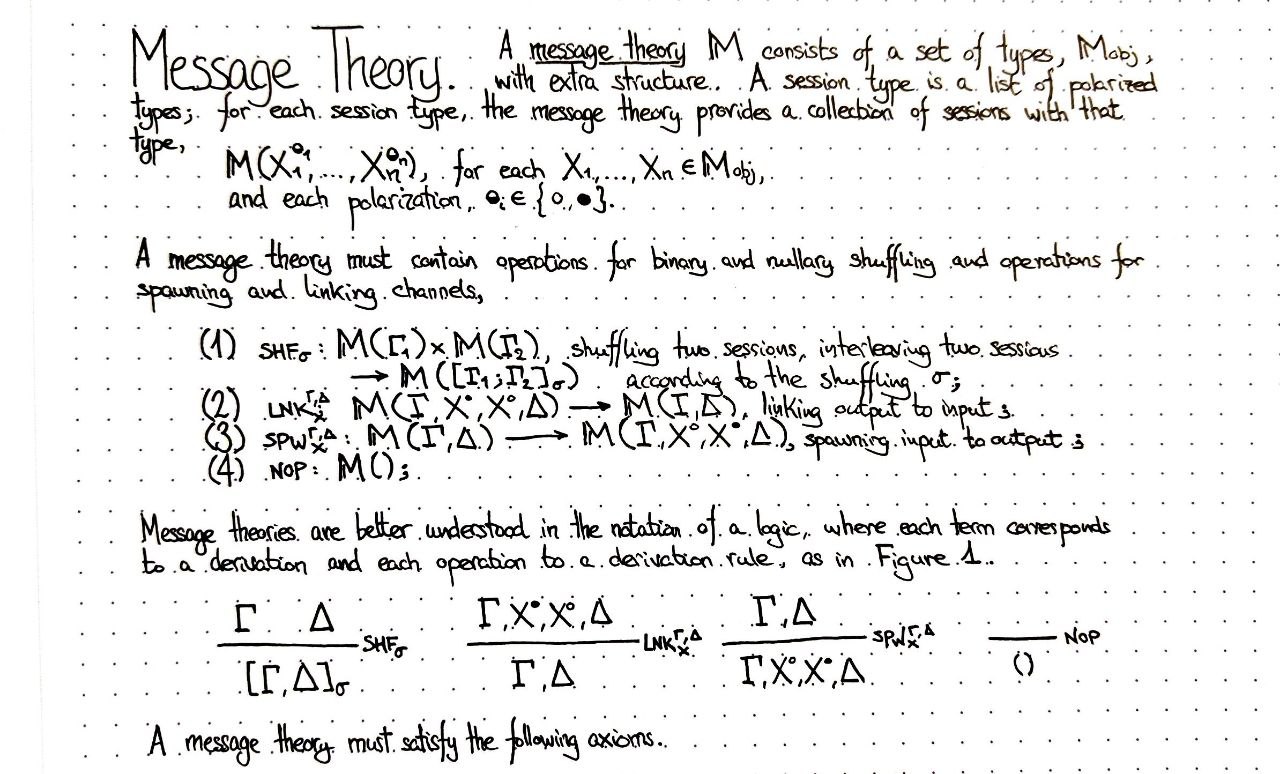 Message Theory. A message theory 𝕄 consists of a set of types, 𝕄obj,
with extra structure. A session type is a list of polarized
types; for each session type, the message theory provides a collection of sessions with that
type,
𝕄(X₁^●₁, ..., Xₙ^●ₙ), for each X₁, ..., Xₙ ∈ 𝕄obj,
and each polarization, ●ᵢ ∈ {○, ●}.
A message theory must contain operations for binary and nullary shuffling and operations for
spawning and linking channels,
(1) SHFσ : 𝕄(Γ₁) × 𝕄(Γ₂), shuffling two sessions, interleaving two sessions
→ 𝕄([Γ₁; Γ₂]σ) according to the shuffling σ;
(2) LNKₓ^Γ,Δ 𝕄(Γ, X^●, X^○, Δ) → 𝕄(Γ, Δ), linking output to input;
(3) SPWₓ^Γ,Δ : 𝕄(Γ, Δ) → 𝕄(Γ, X^○, X^●, Δ), spawning input to output;
(4) NOP : 𝕄();
Message theories are better understood in the notation of a logic, where each term corresponds
to a derivation and each operation to a derivation rule, as in Figure 1.
Γ Δ
SHFσ
[Γ, Δ]σ
Γ, X^●, X^○, Δ
LNKₓ^Γ,Δ
Γ, Δ
Γ, Δ
SPWₓ^Γ,Δ
Γ, X^○, X^●, Δ
NOP
()
A message theory must satisfy the following axioms.